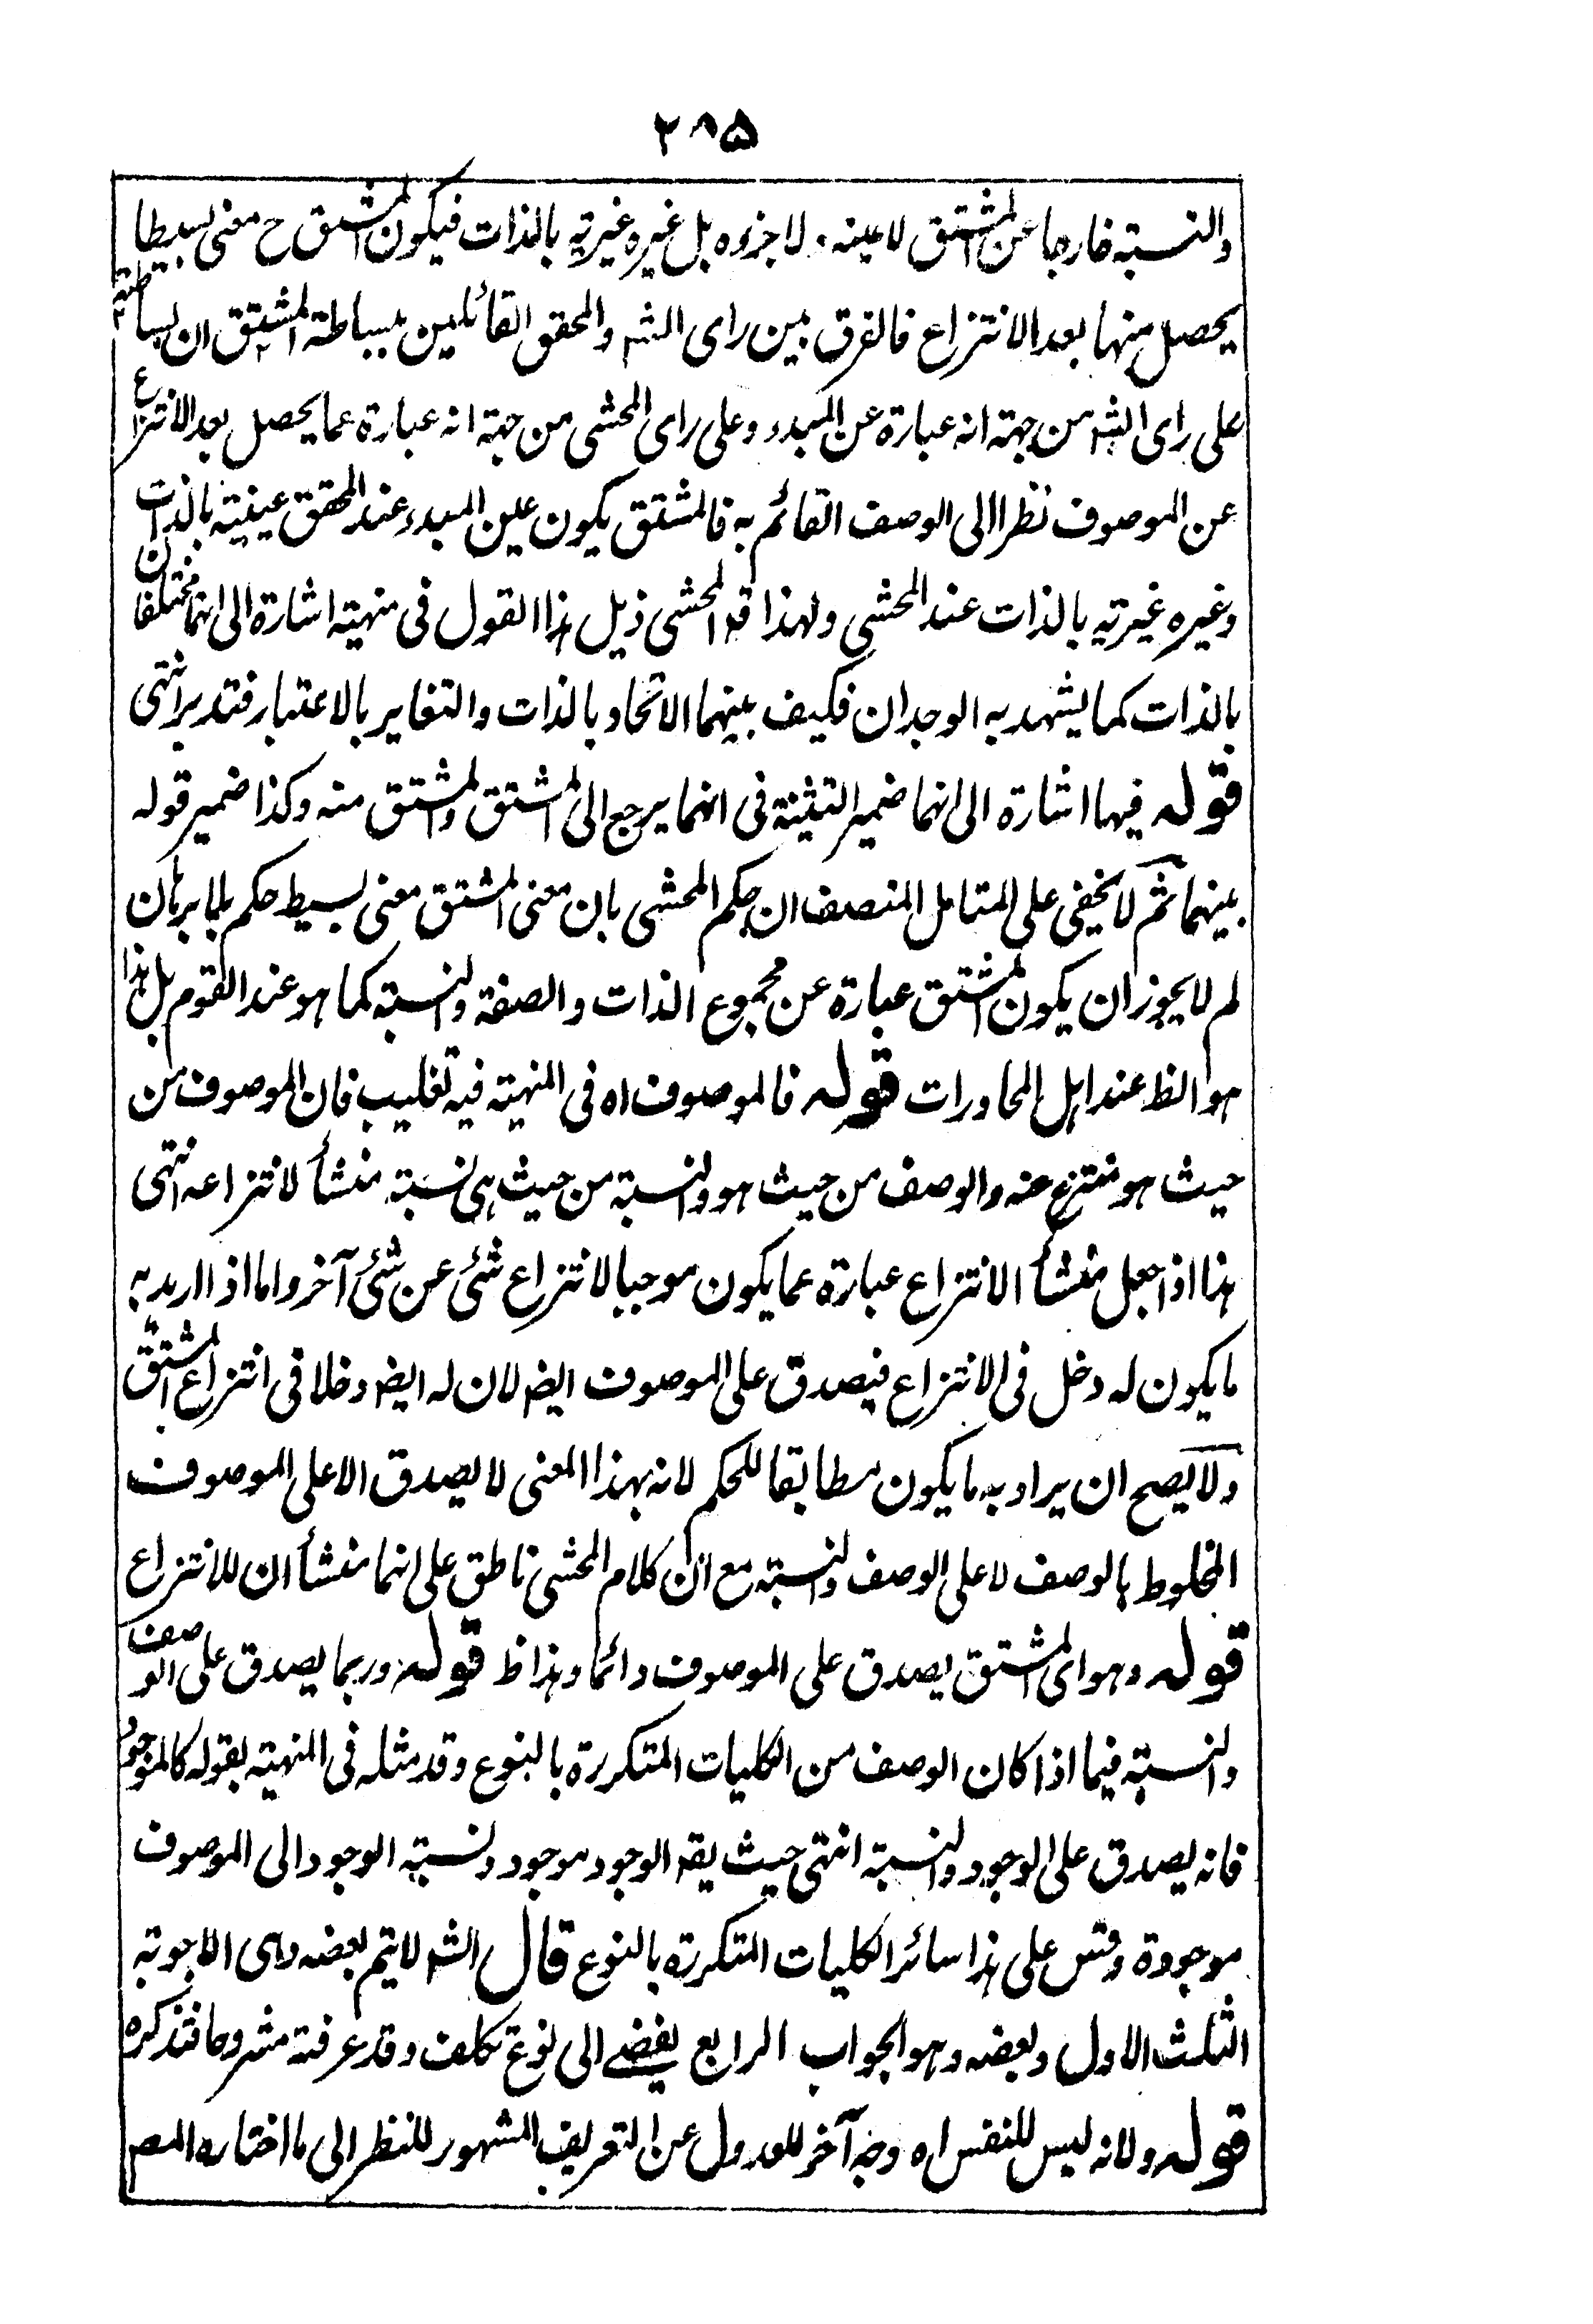 ٢٨٥
والنسبته خارجا عن المشتق لا عينه ولا جزوه بل غيره غيريته بالذات فيكون المشتق ح معنى بسيطا
يحصل منها بعد الانتزاع فالفرق بين راى الشه والمحقق القائلين ببساطة المشتق ان بساطته
على راى الشه من جهته انه عبارة عن المبدء وعلى راى المحشى من جهته انه عبارة عما يحصل بعد الانتزاع
عن الموصوف نظرا الى الوصف القائم به فالمشتق يكون عين المبدء عند المحقق عينيته بالذات
وغيره غيريته بالذات عند المحشى ولهذا قه المحشى ذيل هذا القول فى منهيته اشارة الى انهما مختلفان
بالذات كما يشهد به الوجدان فكيف بينهما الاتحاد بالذات والتغاير بالاعتبار فتدبر انتهى
قوله فيها اشارة الى انهما ضمير التثنية فى انهما يرجع الى المشتق والمشتق منه وكذا ضمير قوله
بينهما ثم لا يخفى على المتامل المنصف ان حكم المحشى بان معنى المشتق معنى بسيط حكم بلا برهان
لم لا يجوز ان يكون المشتق عبارة عن مجموع الذات والصفة والنسبته كما هو عند القوم بل هذا
هو الظ عند اهل المحاورات قوله فالموصوف اه فى المنهيته فيه تغليب فان الموصوف من
حيث هو منتزع عنه والوصف من حيث هو والنسبته من حيث هى نسبته منشأ لانتزاعه انتهى
هذا اذا جعل منشأ الانتزاع عبارة عما يكون موجبا لانتزاع شئ عن شئ آخر واما اذا اريد به
ما يكون له دخل فى الانتزاع فيصدق على الموصوف ايضه لان له ايضه دخلا فى انتزاع المشتق
ولا يصح ان يراد به ما يكون مطابقا للحكم لانه بهذا المعنى لا يصدق الا على الموصوف
المخلوط بالوصف لا على الوصف والنسبته مع ان كلام المحشى ناطق على انهما منشأ ان للانتزاع
قوله وهو اى المشتق يصدق على الموصوف دائما وهذا ظ قوله وربما يصدق على الوصف
والنسبته فيما اذا كان الوصف من الكليات المتكررة بالنوع وقد مثله فى المنهيته بقوله كالموجود
فانه يصدق على الوجود والنسبته انتهى حيث يقه الوجود موجود ونسبته الوجود الى الموصوف
موجودة وقس على هذا سائر الكليات المتكررة بالنوع قال الشه لا يتم بعضه وهى الاجوبته
الثلث الاول وبعضه وهو الجواب الرابع يفضے الى نوع تكلف وقد عرفته مشروحا فتذكره
قوله ولانه ليس للنفس اه وجه آخر للعدول عن التعريف المشهور للنظر الى ما اختاره المصه